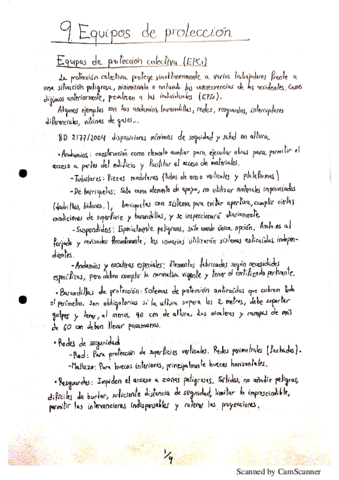 9. Equipos de protección
Equipos de protección colectiva (EPC)
La protección colectiva protege simultáneamente a varios trabajadores frente a
una situación peligrosa, minimizando o evitando las consecuencias de los accidentes. Como
dijimos anteriormente, prevalecen a las individuales (EPI).
Algunos ejemplos son los andamios, barandillas, redes, resguardos, interruptores
diferenciales, vitrinas de gases...
RD 2177/2004 disposiciones mínimas de seguridad y salud en altura.
• Andamios: construcción como ayuda auxiliar para ejecutar obras para permitir el
acceso a partes del edificio y facilitar el acceso de materiales.
- Tubulares: Piezas modulares (tubos de acero verticales y plataformas)
- De borriquetas: Solo como elemento de apoyo, no utilizar materiales improvisados
(ladrillos, bidones...), borriquetas con sistema para evitar apertura, cumplir ciertas
condiciones de superficie y barandillas, y se inspeccionará diariamente.
- Suspendidos: Especialmente peligrosos, sólo cuando única opción. Anclaje al
forjado y revisados, los usuarios utilizarán sistemas anticaídas indepen-
dientes.
- Andamios y escaleras especiales: Elementos fabricados según necesidades
específicas, pero deben cumplir la normativa vigente y tener el certificado pertinente.
• Barandillas de protección: Sistemas de protección anticaídas que cubren todo
el perímetro. Son obligatorias si la altura supera los 2 metros, debe soportar
golpes y tener, al menos, 90 cm de altura. Las escaleras y rampas de más
de 60 cm deben llevar pasamanos.
• Redes de seguridad
- Red: Para protección de superficies verticales. Redes perimetrales (fachadas).
- Mallazo: Para huecos interiores, principalmente huecos horizontales.
• Resguardos: Impiden el acceso a zonas peligrosas. Sólidos, no añadir peligros,
difíciles de burlar, suficiente distancia de seguridad, limitar lo imprescindible,
permitir las intervenciones indispensables y retener las proyecciones.
1/9
Scanned by CamScanner